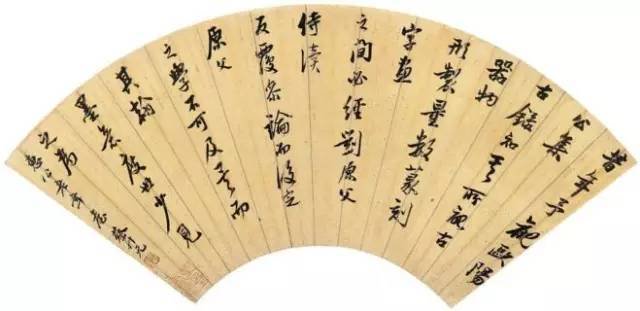 昔年予觀歐陽
公集
古錄知其所觀古
器物
形製量數篆刻
字畫
之間必經劉原父
侍讀
反覆參論而後定
原父
之學不可及矣而
其翰
墨世少見
之為